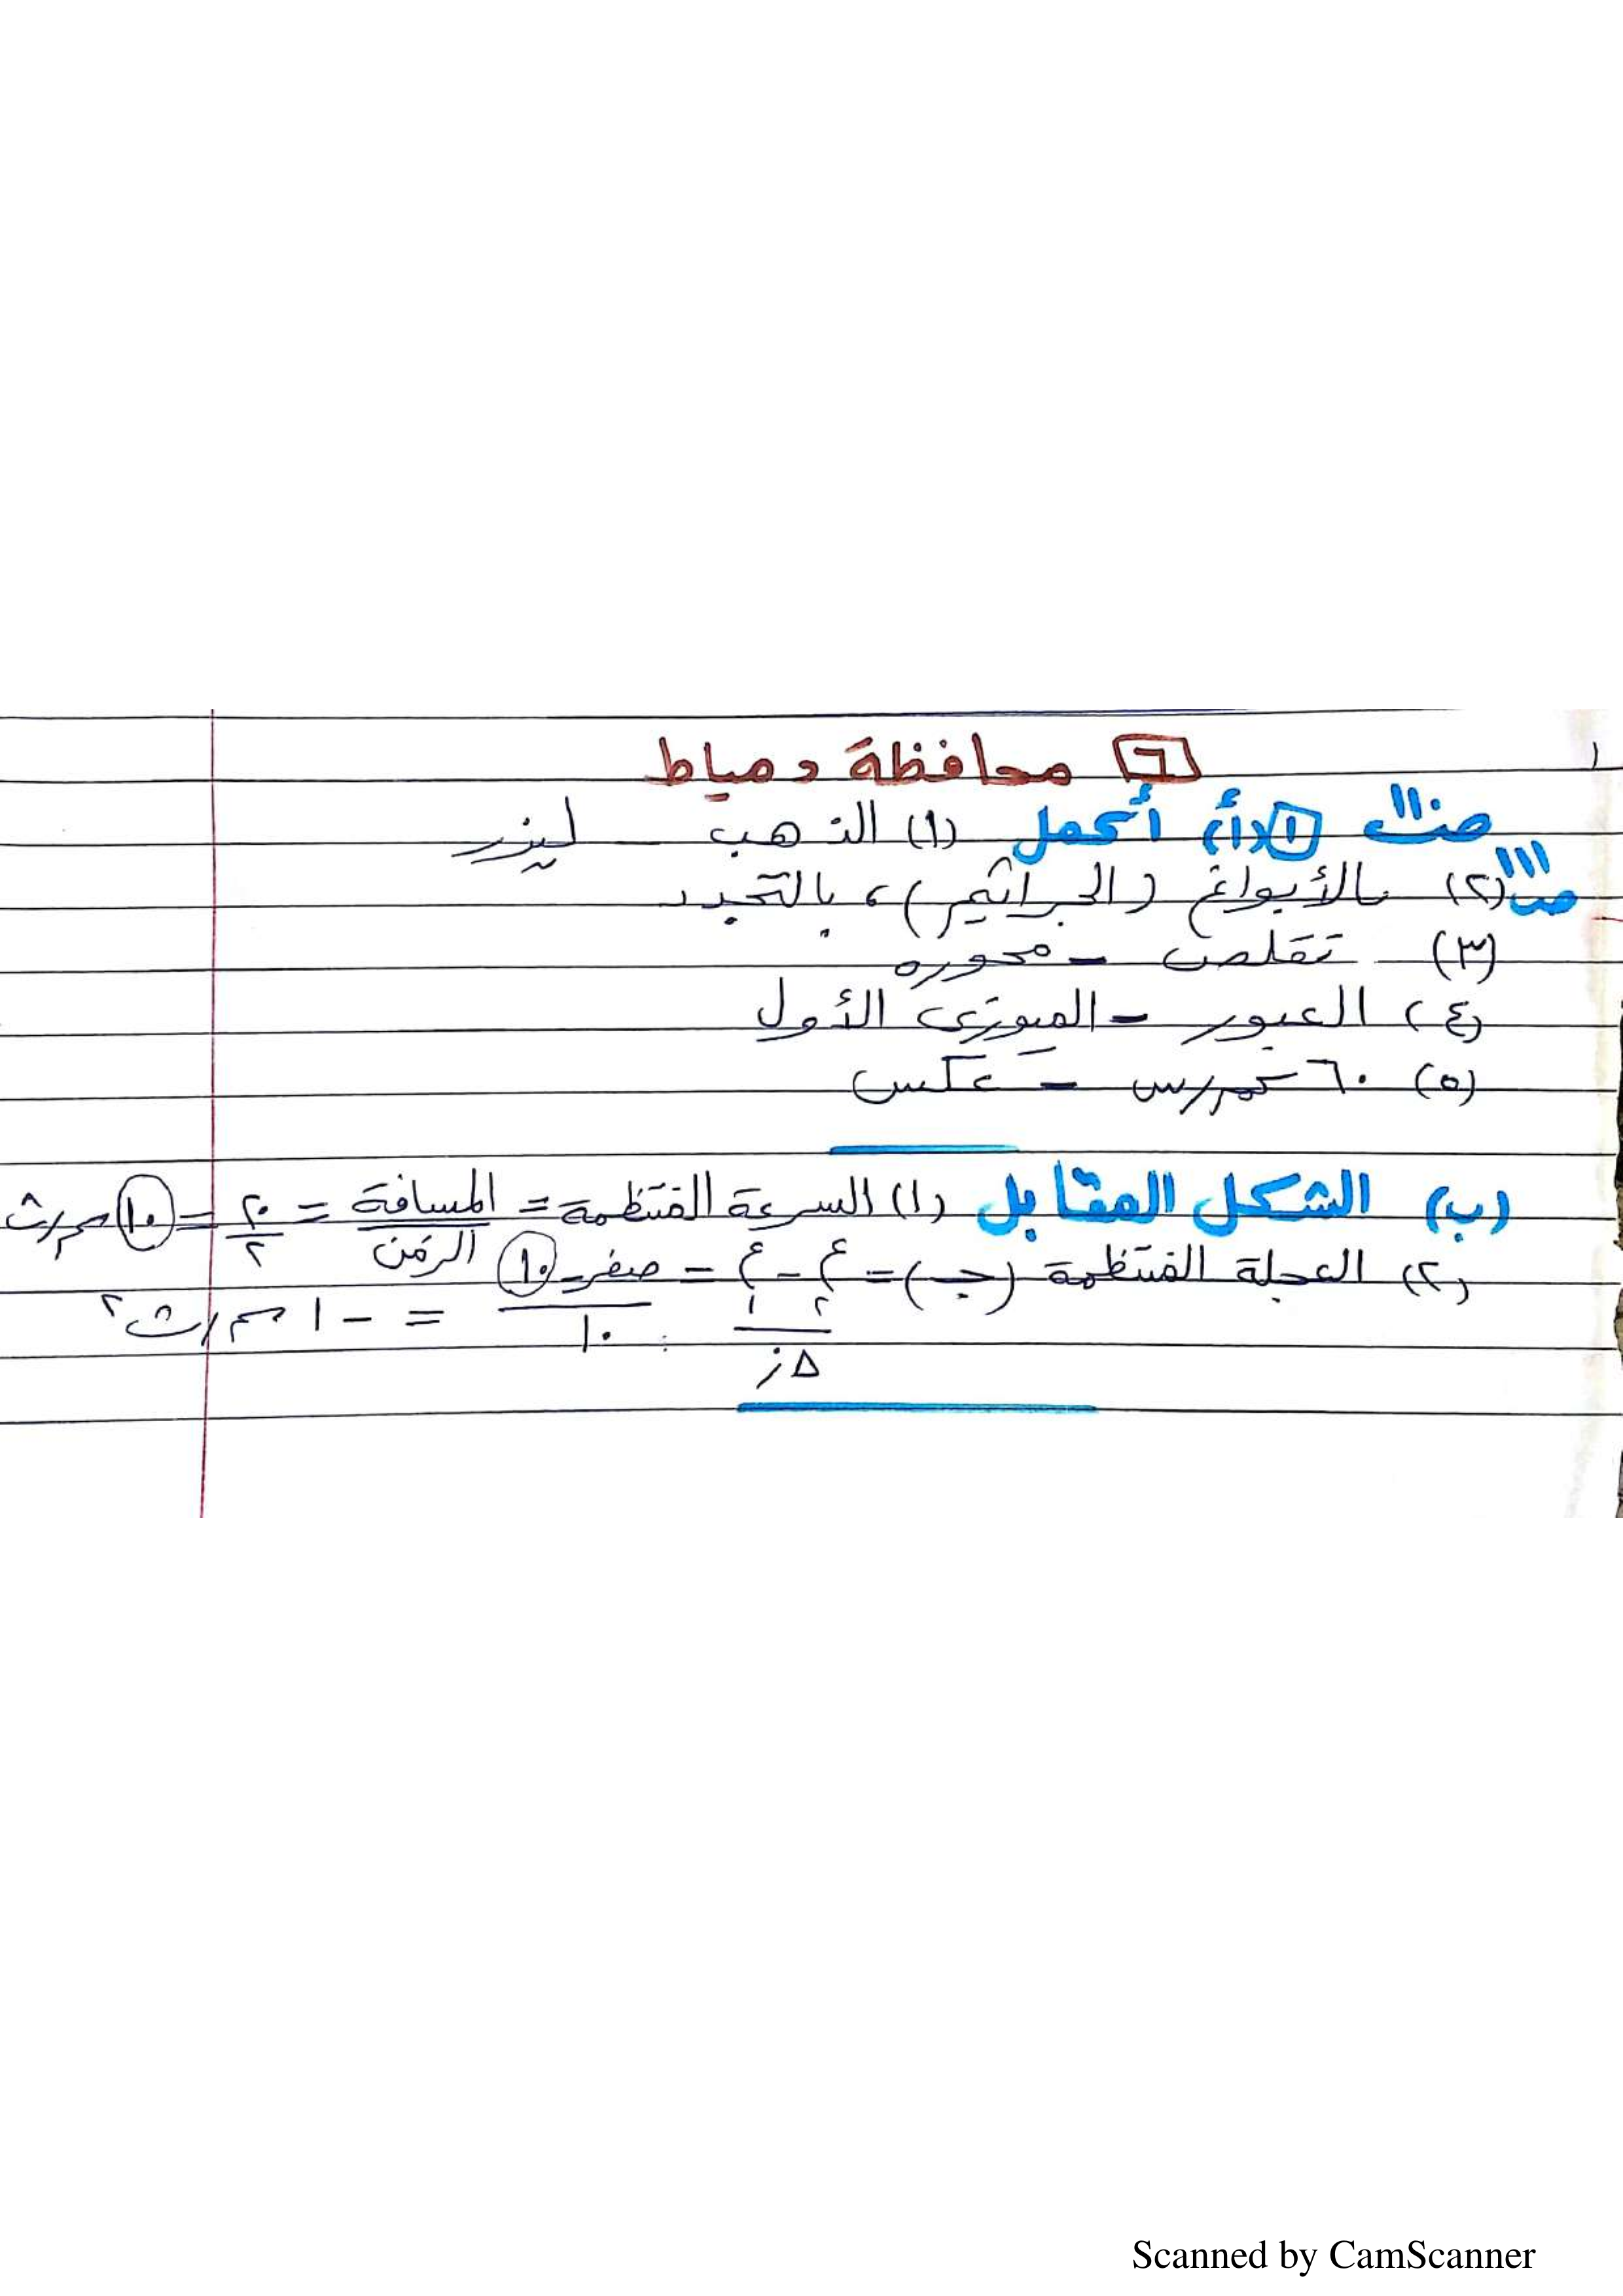 ٦ محافظة دمياط
ص١١٠ ١ (أ) أكمل (١) الذهب - ليزر
ص١١١ (٢) بالأبواغ (الجراثيم) ، بالتجدد
(٣) تقلص - محوره
(٤) العبور - الميوزى الأول
(٥) ٦٠ كم/س - عكس
(ب) الشكل المقابل (١) السرعة المنتظمة = المسافة / الزمن = ٢٠ / ٢ = ١٠ م/ث
(٢) العجلة المنتظمة (جـ) = ع٢ - ع١ / Δز = صفر - ١٠ / ١٠ = - ١ م/ث٢
Scanned by CamScanner